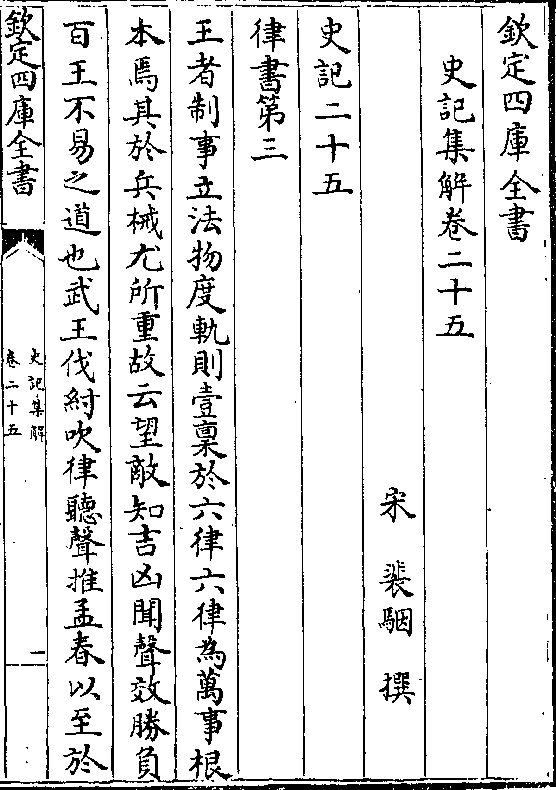 欽定四庫全書
史記集解卷二十五
宋 裴駰 撰
史記二十五
律書第三
王者制事立法物度軌則壹稟於六律六律為萬事根
本焉其於兵械尤所重故云望敵知吉凶聞聲效勝負
百王不易之道也武王伐紂吹律聽聲推孟春以至於
欽定四庫全書
史記集解
卷二十五
一